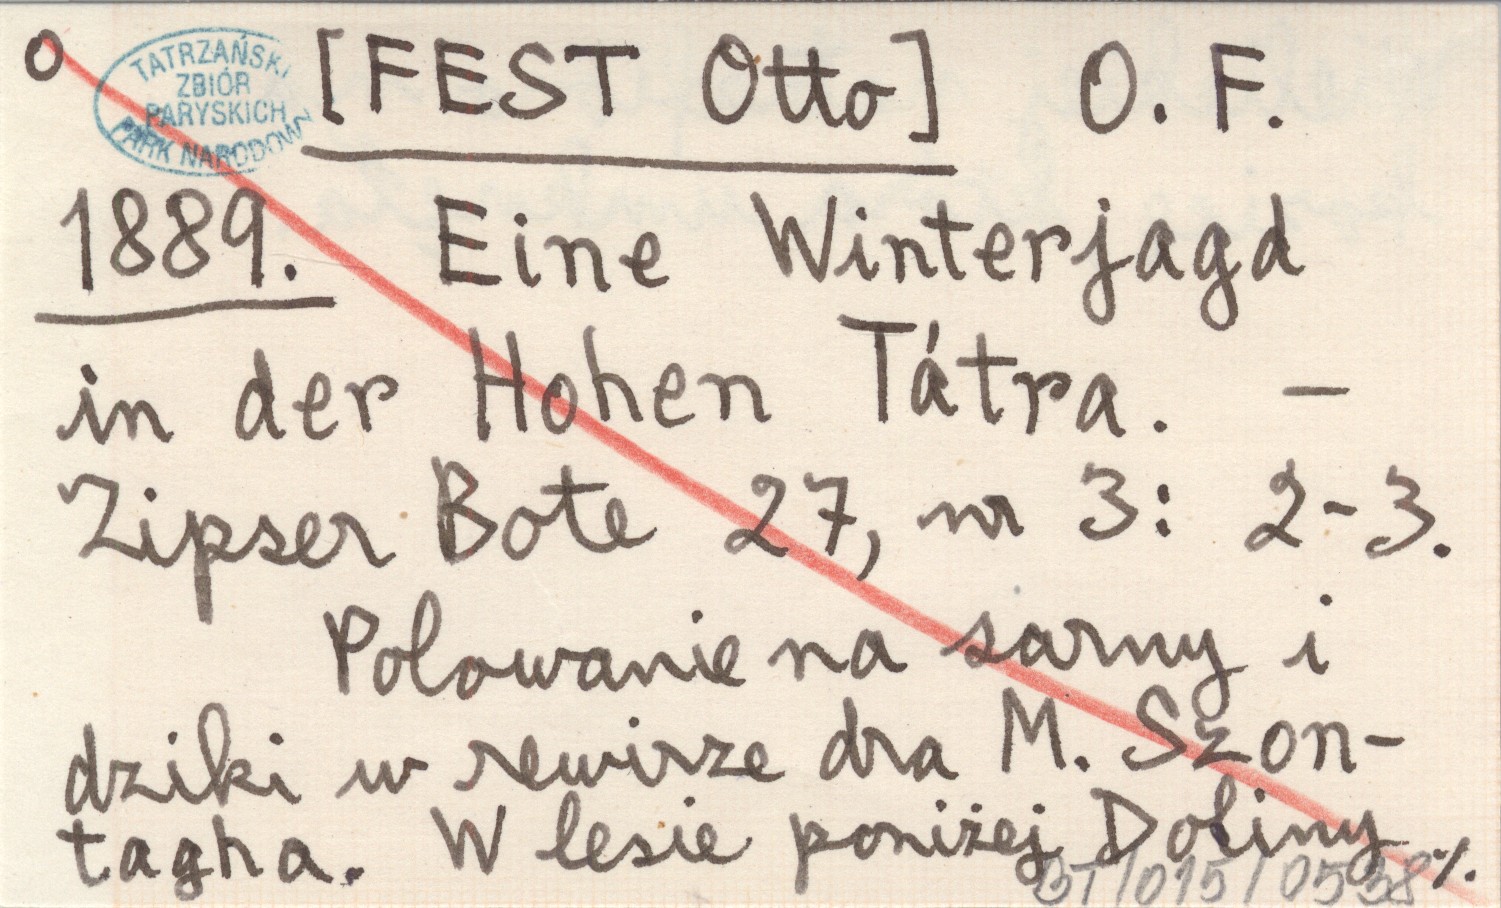 o
TATRZAŃSKI
ZBIÓR
PARYSKICH
PARK NARODOWY
[FEST Otto] O. F.
1889. Eine Winterjagd
in der Hohen Tátra. –
Zipser Bote 27, nr 3: 2-3.
Polowanie na sarny i
dziki w rewirze dra M. Szon-
tagha. W lesie poniżej Doliny ./.
BT/015/0538